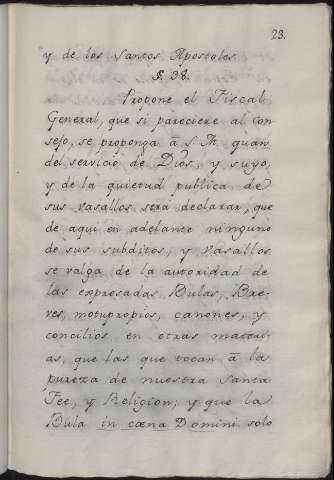 23.
y de los Santos Apostoles.
§. 38.
Propone el Fiscal
General, que si pareciere al Con
sejo, se proponga â S. M. quan
del servicio de Dios, y suyo,
y de la quietud publica de
sus vasallos serâ declarar, que
de aqui en adelante ninguno
de sus subditos, y Vasallos
se valga de la autoridad de
las expresadas Bulas, Bre-
ves, motupropios, canones, y
concilios en otras materi-
as, que las que tocan â la
pureza de nuestra Santa
Fee, y Religion; y que la
Bula in cœna Domini solo